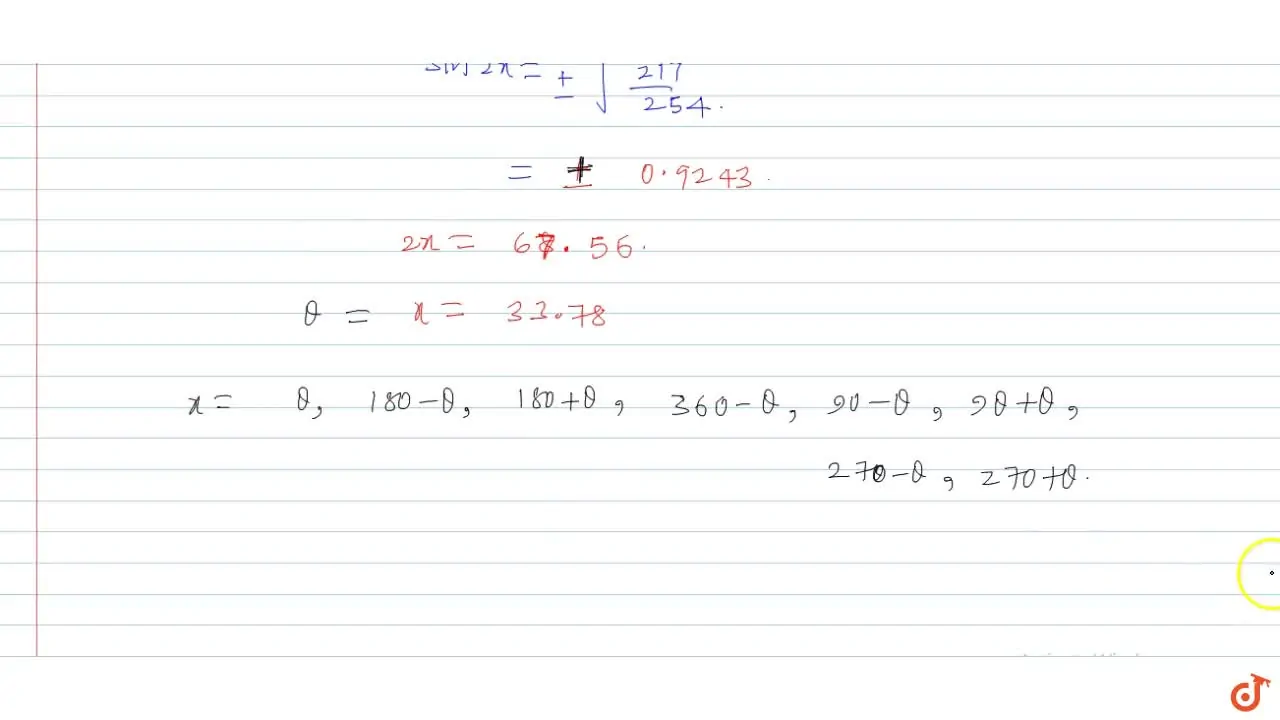 sin 2x = ± √ 217/254.
= ± 0.9243.
2x = 67.56.
θ = x = 33.78
x = θ, 180-θ, 180+θ, 360-θ, 90-θ, 90+θ,
270-θ, 270+θ.